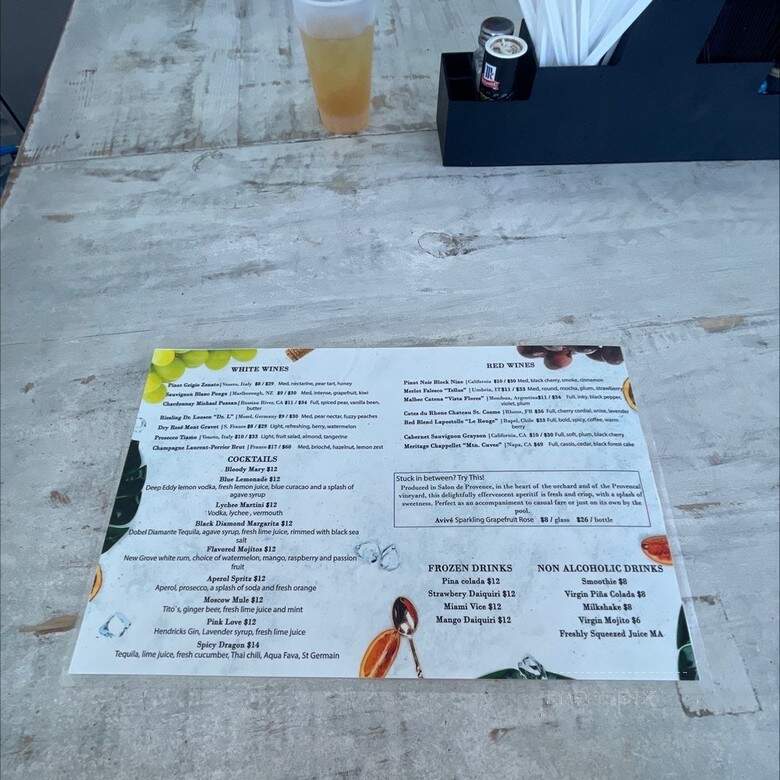 WHITE WINES
Pinot Grigio Zenato | Veneto, Italy $8 / $29 Med, nectarine, pear tart, honey
Sauvignon Blanc Ponga | Marlborough, NZ $9 / $30 Med, intense, grapefruit, kiwi
Chardonnay Michael Pozzan | Russian River, CA $11 / $34 Full, spiced pear, vanilla bean,
butter
Riesling Dr. Loosen "Dr. L" | Mosel, Germany $9 / $30 Med, pear nectar, fuzzy peaches
Dry Rosé Mont Gravet | S. France $8 / $28 Light, refreshing, berry, watermelon
Prosecco Tiamo | Veneto, Italy $10 / $33 Light, fruit salad, almond, tangerine
Champagne Laurent-Perrier Brut | France $17 / $60 Med, brioché, hazelnut, lemon zest
COCKTAILS
Bloody Mary $12
Blue Lemonade $12
Deep Eddy lemon vodka, fresh lemon juice, blue curacao and a splash of
agave syrup
Lychee Martini $12
Vodka, lychee , vermouth
Black Diamond Margarita $12
Dobel Diamante Tequila, agave syrup, fresh lime juice, rimmed with black sea
salt
Flavored Mojitos $12
New Grove white rum, choice of watermelon, mango, raspberry and passion
fruit
Aperol Spritz $12
Aperol, prosecco, a splash of soda and fresh orange
Moscow Mule $12
Tito´s, ginger beer, fresh lime juice and mint
Pink Love $12
Hendricks Gin, Lavender syrup, fresh lime juice
Spicy Dragon $14
Tequila, lime juice, fresh cucumber, Thai chili, Aqua Fava, St Germain
RED WINES
Pinot Noir Black Nine | California $10 / $30 Med, black cherry, smoke, cinnamon
Merlot Falesco "Tellus" | Umbria, IT $11 / $33 Med, round, mocha, plum, strawberry
Malbec Catena "Vista Flores" | Mendoza, Argentina $11 / $34 Full, inky, black pepper,
violet, plum
Cotes du Rhone Chateau St. Cosme | Rhone, FR $36 Full, cherry cordial, anise, lavender
Red Blend Lapostolle "Le Rouge" | Rapel, Chile $33 Full, bold, spicy, coffee, warm
berry
Cabernet Sauvignon Grayson | California, CA $10 / $30 Full, soft, plum, black cherry
Meritage Chappellet "Mtn. Cuvee" | Napa, CA $69 Full, cassis, cedar, black forest cake
Stuck in between? Try This!
Produced in Salon de Provence, in the heart of the orchard and of the Provencal
vineyard, this delightfully effervescent aperitif is fresh and crisp, with a splash of
sweetness. Perfect as an accompaniment to casual fare or just on its own by the
pool.
Avivé Sparkling Grapefruit Rose $8 / glass $26 / bottle
FROZEN DRINKS
Pina colada $12
Strawbery Daiquiri $12
Miami Vice $12
Mango Daiquiri $12
NON ALCOHOLIC DRINKS
Smoothie $8
Virgin Piña Colada $8
Milkshake $8
Virgin Mojito $6
Freshly Squeezed Juice MA